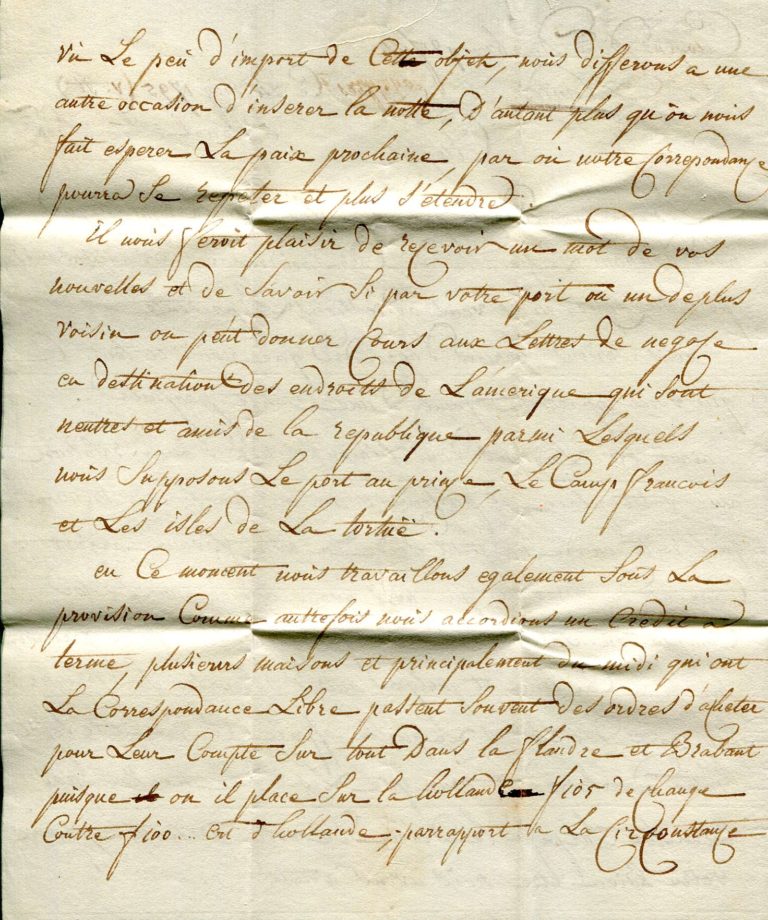 vu Le peu d'import de Cette objet, nous differons a une
autre occasion d'inserer la notte, D'autant plus qu'on nous
fait esperer La paix prochaine, par où notre Correpondance
pourra Se repeter et plus s'étendre.
il nous feroit plaisir de recevoir un mot de vos
nouvelles et de Savoir Si par votre port ou un de plus
voisin on peut donner Cours aux Lettres de negoce
en destination des endroits de L'amerique qui sont
neutres et amis de la republique parmi Lesquels
nous Supposons Le port au prince, Le Camp francois
et Les isles de La tortuë.
en Ce moment nous travaillons egalement Sous La
provision Comme autrefois nous accordions un Credit a
terme, plusieurs maisons et principalement du midi qui ont
La Correspondance Libre passent Souvent des ordres d'acheter
pour Leur Compte Sur tout Dans la flandre et Brabant
puisque on il place Sur la holland f105 de change
Contre f100... crt d'hollande, parrapport a La Circonstance